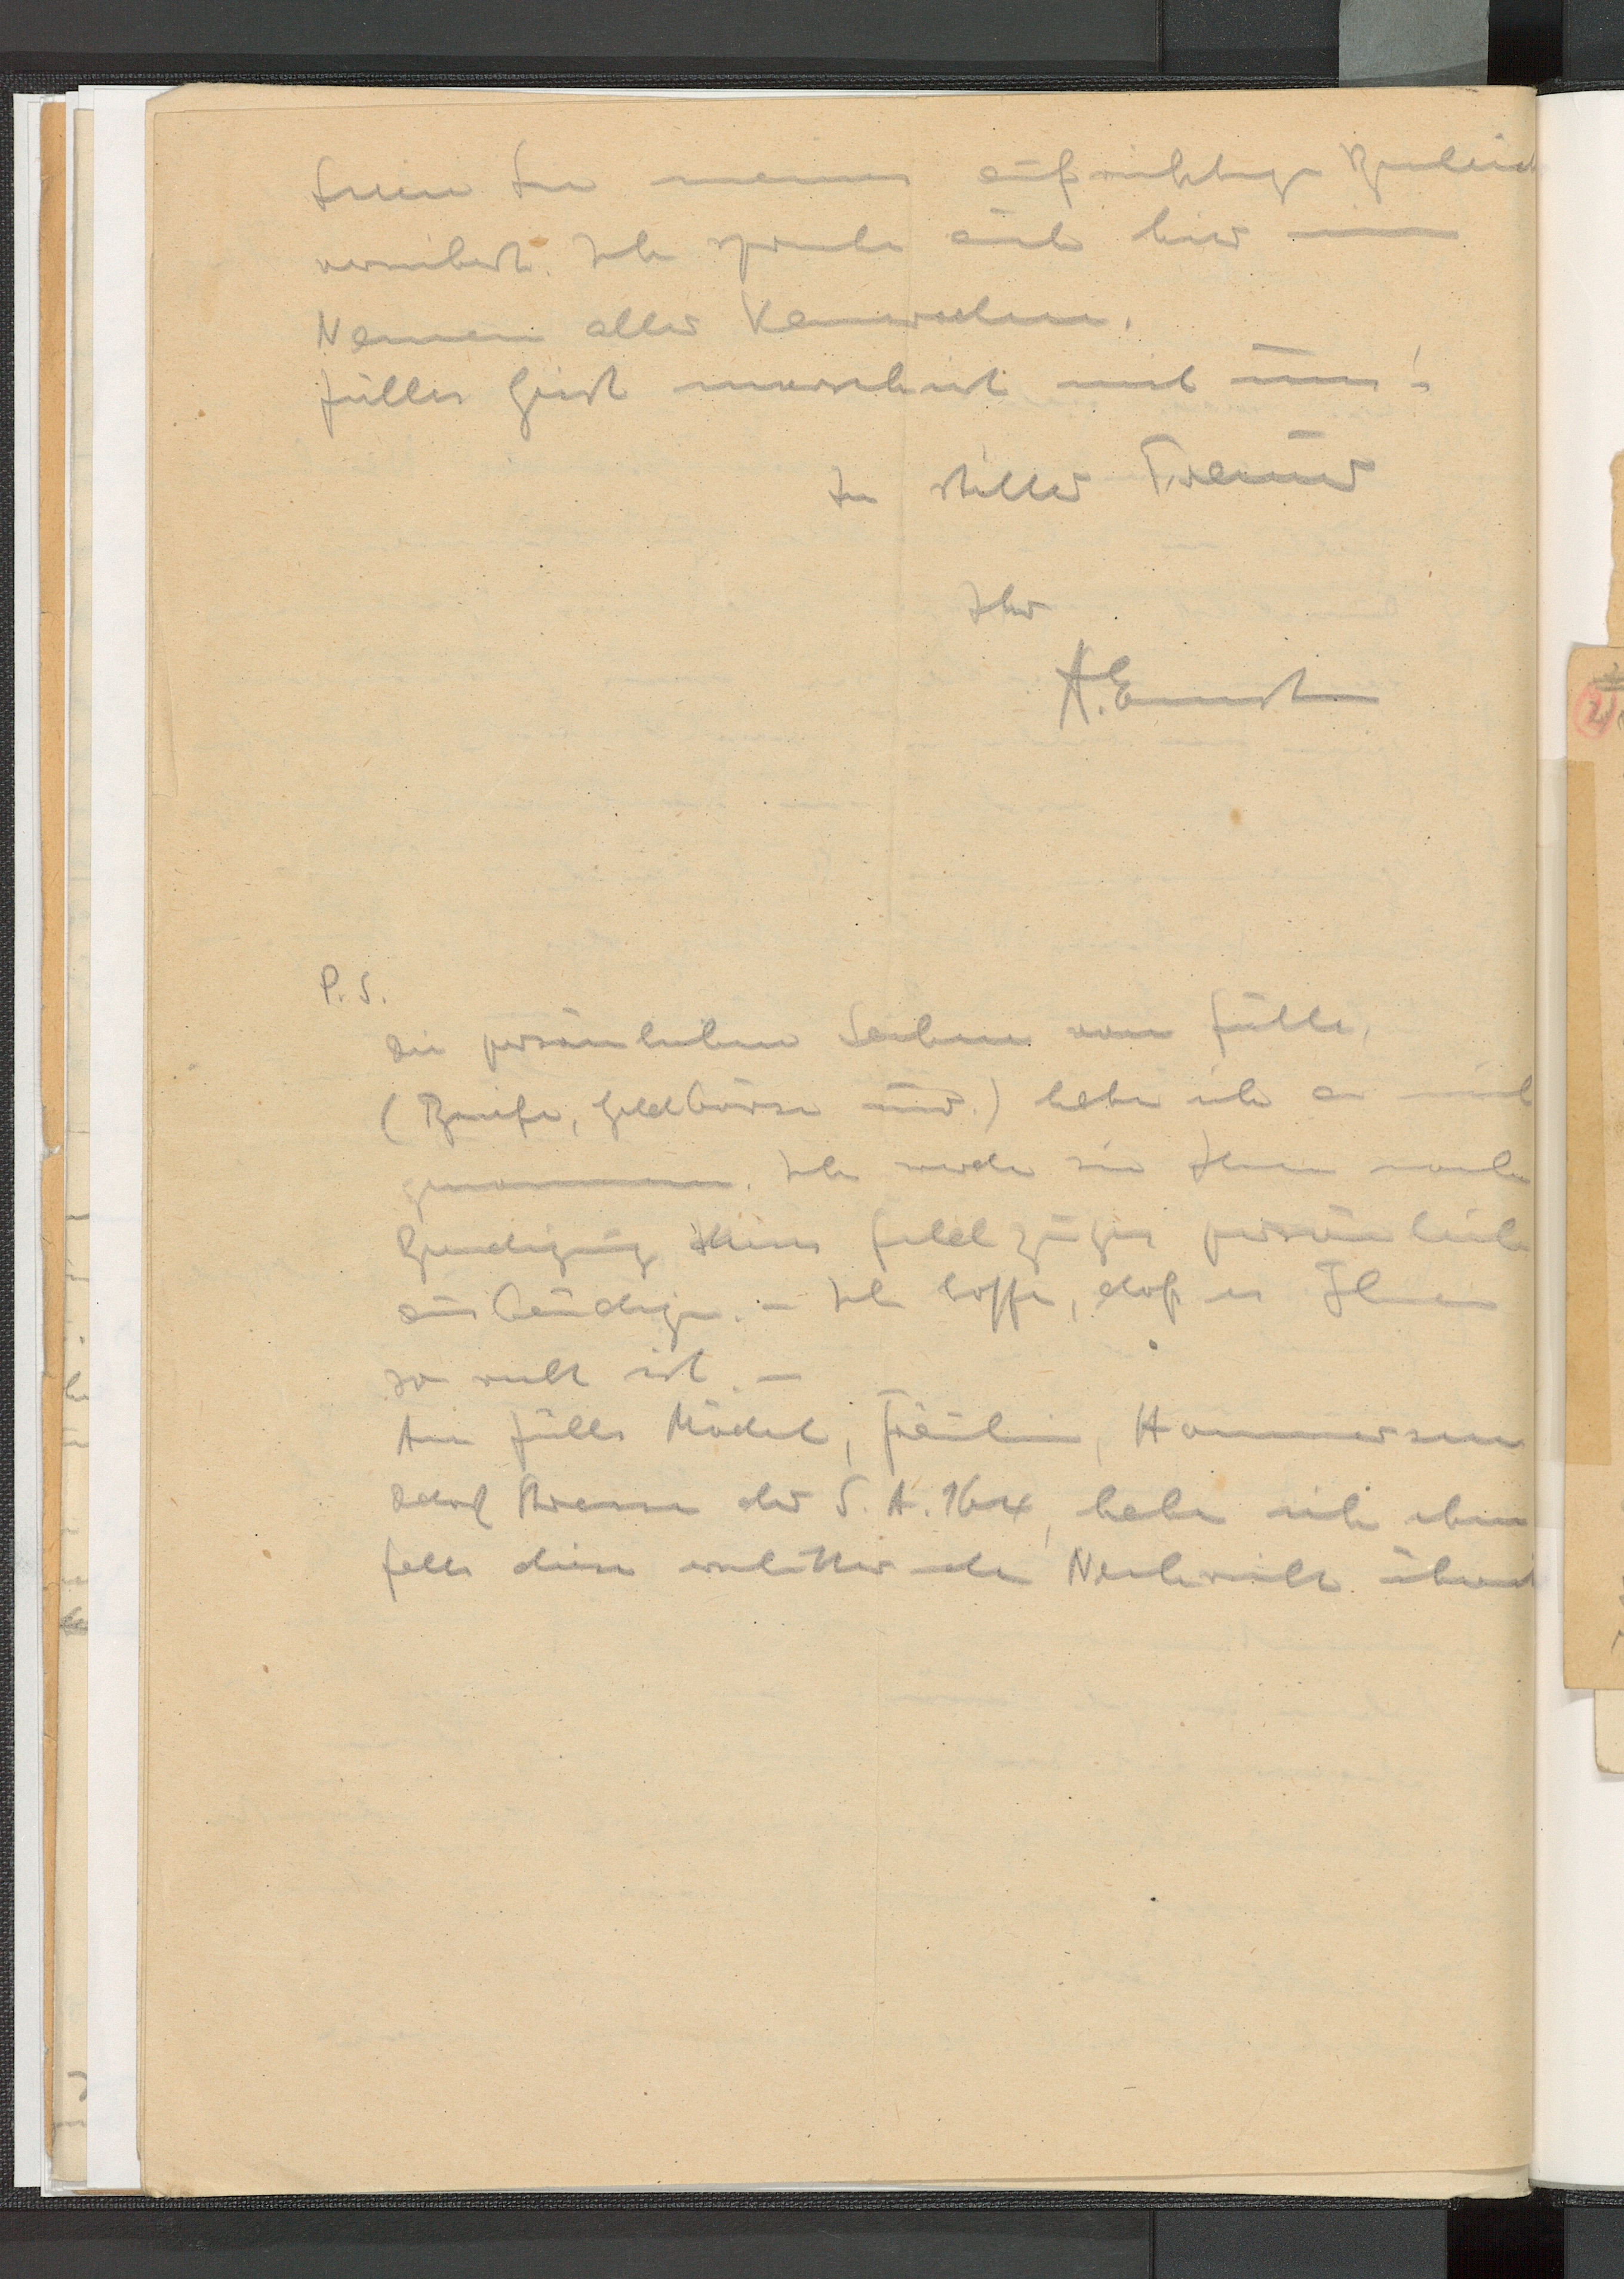 Seien Sie meines aufrichtigen Beileids
versichert. Ich spreche auch hier im
Namen aller Kameraden.
Jülls Geist marschiert mit uns!
In stiller Trauer
Ihr
A. Ernst
P. S.
Die persönlichen Sachen von Jülle,
(Briefe, Geldbörse usw.) habe ich an mich
genommen. Ich werde sie Ihnen nach
Beendigung dieses Feldzuges persönlich
aushändigen. – Ich hoffe, daß es Ihnen
so recht ist. –
An Jülls Mädel, Fräulein Hammersen
Ddorf Strasse der S. A. 164, habe ich eben
falls diese erschütternde Nachricht